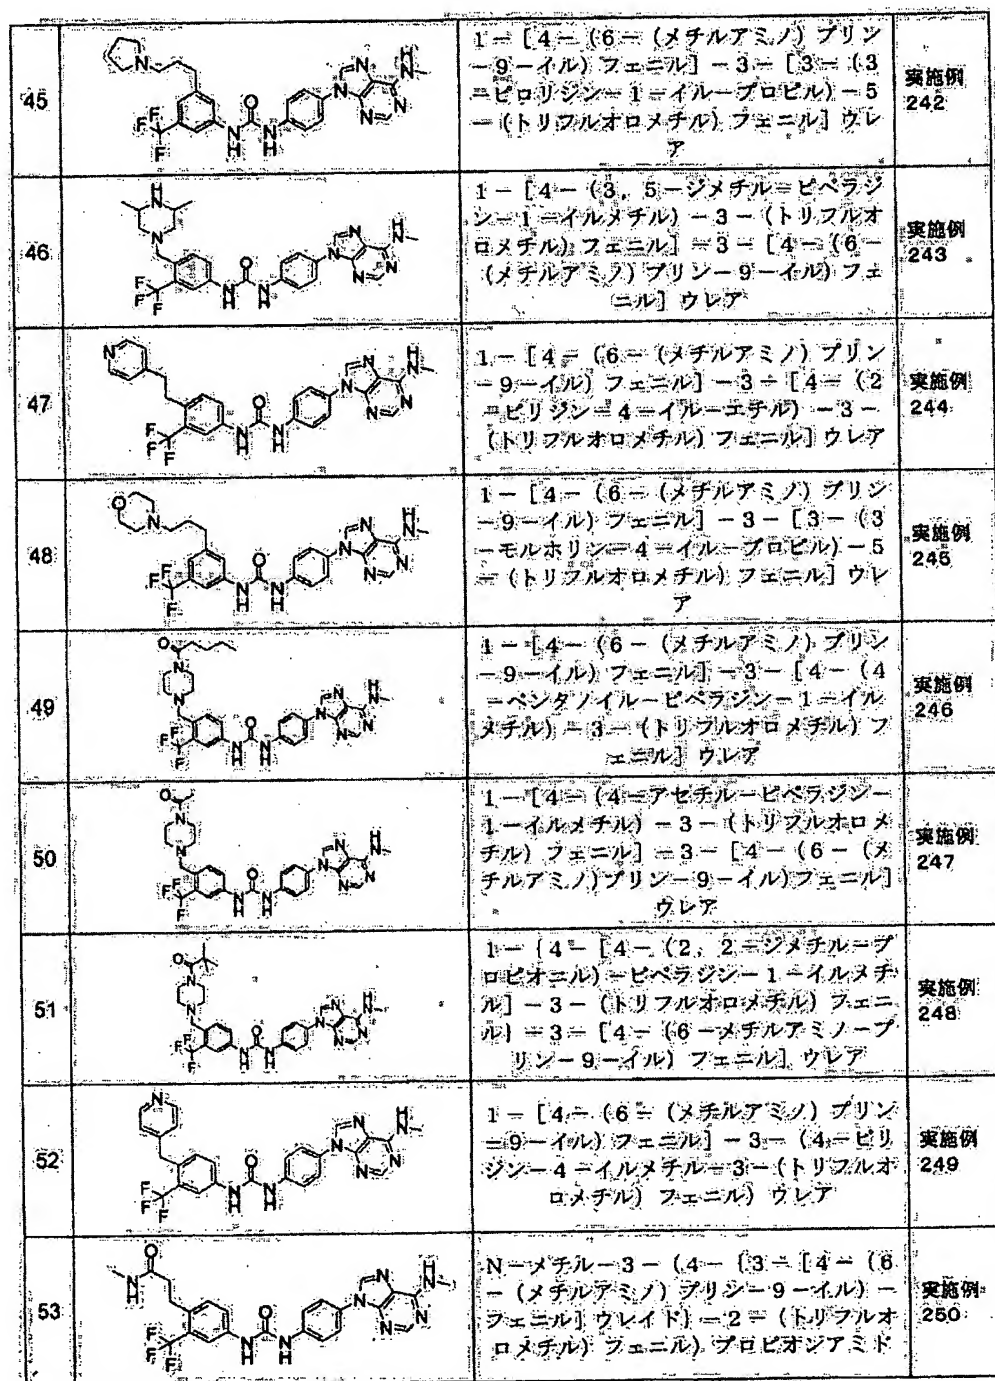 45
1－［4－（6－（メチルアミノ）プリン
－9－イル）フェニル］－3－［3－（3
－ピロリジン－1－イル－プロピル）－5
－（トリフルオロメチル）フェニル］ウレ
ア
実施例
242
46
1－［4－（3，5－ジメチル－ピペラジ
ン－1－イルメチル）－3－（トリフルオ
ロメチル）フェニル］－3－［4－（6－
（メチルアミノ）プリン－9－イル）フェ
ニル］ウレア
実施例
243
47
1－［4－（6－（メチルアミノ）プリン
－9－イル）フェニル］－3－［4－（2
－ピリジン－4－イル－エチル）－3－
（トリフルオロメチル）フェニル］ウレア
実施例
244
48
1－［4－（6－（メチルアミノ）プリン
－9－イル）フェニル］－3－［3－（3
－モルホリン－4－イル－プロピル）－5
－（トリフルオロメチル）フェニル］ウレ
ア
実施例
245
49
1－［4－（6－（メチルアミノ）プリン
－9－イル）フェニル］－3－［4－（4
－ペンタノイル－ピペラジン－1－イル
メチル）－3－（トリフルオロメチル）フ
ェニル］ウレア
実施例
246
50
1－［4－（4－アセチル－ピペラジン－
1－イルメチル）－3－（トリフルオロメ
チル）フェニル］－3－［4－（6－（メ
チルアミノ）プリン－9－イル）フェニル］
ウレア
実施例
247
51
1－｛4－［4－（2，2－ジメチル－プ
ロピオニル）－ピペラジン－1－イルメチ
ル］－3－（トリフルオロメチル）フェニ
ル｝－3－［4－（6－メチルアミノ－プ
リン－9－イル）フェニル］ウレア
実施例
248
52
1－［4－（6－（メチルアミノ）プリン
－9－イル）フェニル］－3－（4－ピリ
ジン－4－イルメチル－3－（トリフルオ
ロメチル）フェニル）ウレア
実施例
249
53
N－メチル－3－（4－｛3－［4－（6
－（メチルアミノ）プリン－9－イル）－
フェニル］ウレイド｝－2－（トリフルオ
ロメチル）フェニル）プロピオンアミド
実施例
250